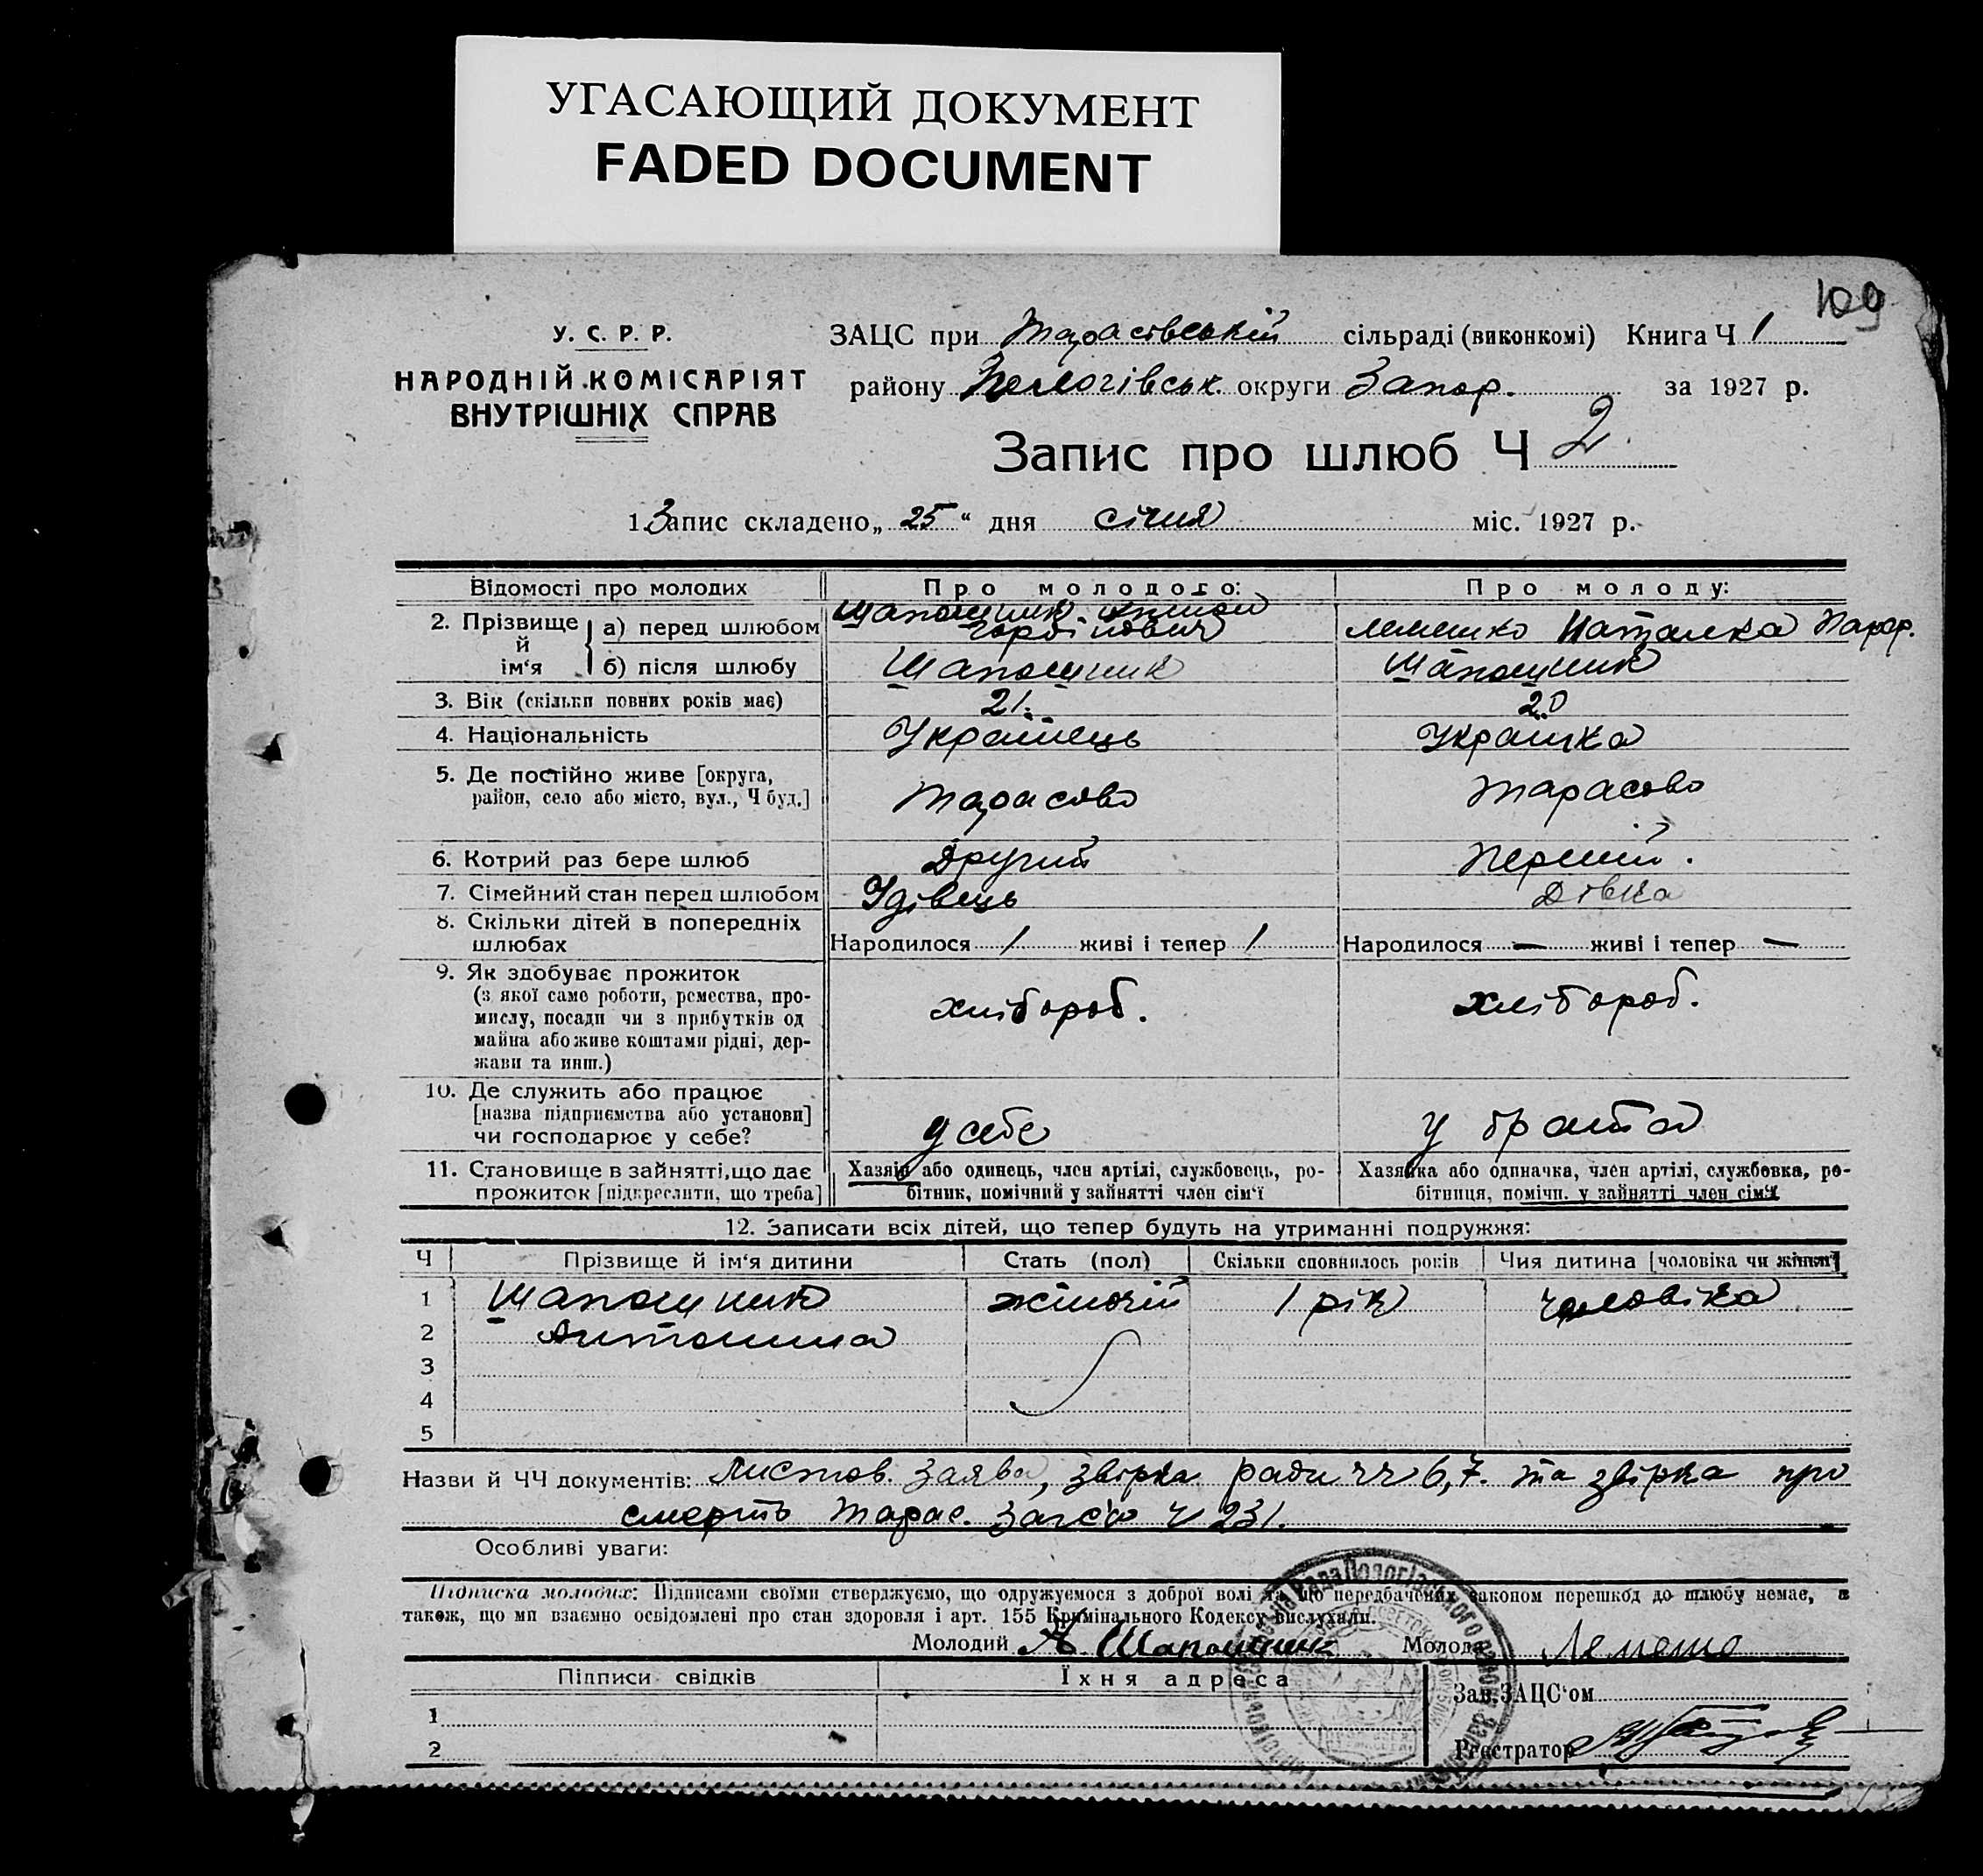 УГАСАЮЩИЙ ДОКУМЕНТ
FADED DOCUMENT
109
У. С. Р. Р.
НАРОДНІЙ КОМІСАРІЯТ
ВНУТРІШНІХ СПРАВ
ЗАЦС при Тарасівській сільраді (виконкомі) Книга Ч 1
району Пологівськ. округи Запор. за 1927 р.
Запис про шлюб Ч 2
1. Запис складено „ 25 “ дня січня міс. 1927 р.
Відомості про молодих Про молодого: Про молоду:
2. Прізвище й ім‘я
а) перед шлюбом Шапошник Гордійович Лемешко Наталка Парф.
б) після шлюбу Шапошник Шапошник
3. Вік (скільки повних років має) 21. 20
4. Національність Українець Українка
5. Де постійно живе [округа,
район, село або місто, вул., Ч буд.] Тарасово Тарасово
6. Котрий раз бере шлюб Другий Перший.
7. Сімейний стан перед шлюбом Удівець Дівка
8. Скільки дітей в попередніх
шлюбах Народилося 1 живі і тепер 1 Народилося — живі і тепер —
9. Як здобуває прожиток
(з якої саме роботи, ремества, про-
мислу, посади чи з прибутків од
майна або живе коштами рідні, дер-
жави та инш.) хлібороб. хлібороб.
10. Де служить або працює
[назва підприємства або установи]
чи господарює у себе? у себе у брата
11. Становище в зайнятті, що дає
прожиток [підкреслити, що треба]
Хазяїн або одинець, член артілі, службовець, ро-
бітник, помічний у зайнятті член сім‘ї
Хазяйка або одиначка, член артілі, службовка, ро-
бітниця, помічн. у зайнятті член сім‘ї
12. Записати всіх дітей, що тепер будуть на утриманні подружжя:
Ч Прізвище й ім‘я дитини Стать (пол) Скільки сповнилось років Чия дитина [чоловіка чи жінки]
1 Шапошник жіночій 1 рік чоловіка
2 Антонина
3
4
5
Назви й ЧЧ документів: Листов. заява, звірка ради чч 6,7. та звірка про
смерть Тарас. Загс‘у ч 231.
Особливі уваги:
Підписка молодих: Підписами своїми стверджуємо, що одружуємося з доброї волі та що передбачених законом перешкод до шлюбу немає, а
також, що ми взаємно освідомлені про стан здоровля і арт. 155 Кримінального Кодексу вислухали.
Молодий А. Шапошник Молода Лемешо
Підписи свідків Їхня адреса
Зав. ЗАЦС‘ом
1
2
Реєстратор